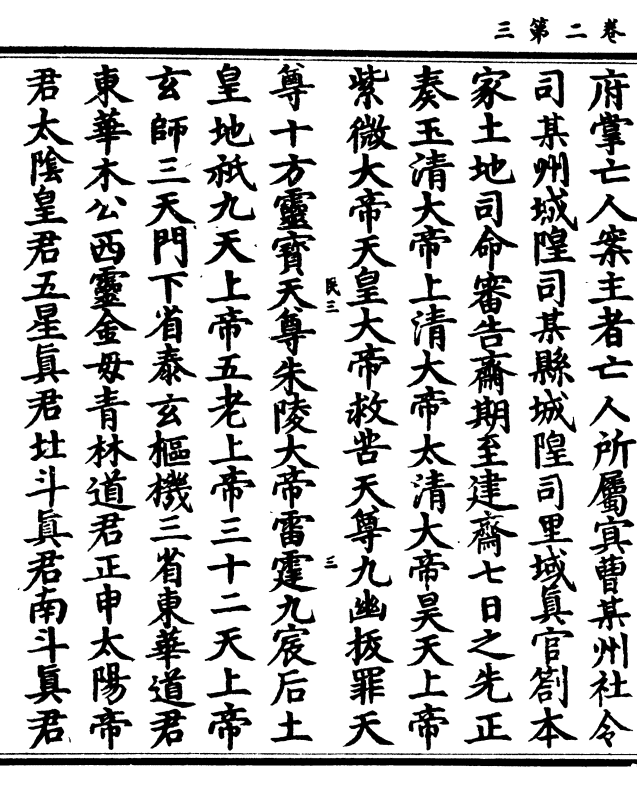 卷二第三
府掌亡人案主者亡人所屬冥曹某州社令
司某州城隍司某縣城隍司里域眞官劄本
家土地司命審告齋期至建齋七日之先正
奏玉清大帝上清大帝太清大帝昊天上帝
紫微大帝天皇大帝救苦天尊九幽拔罪天
民三
三
尊十方靈寶天尊朱陵大帝雷霆九宸后土
皇地祇九天上帝五老上帝三十二天上帝
玄師三天門下省泰玄樞機三省東華道君
東華木公西靈金母青林道君正申太陽帝
君太陰皇君五星眞君北斗眞君南斗眞君